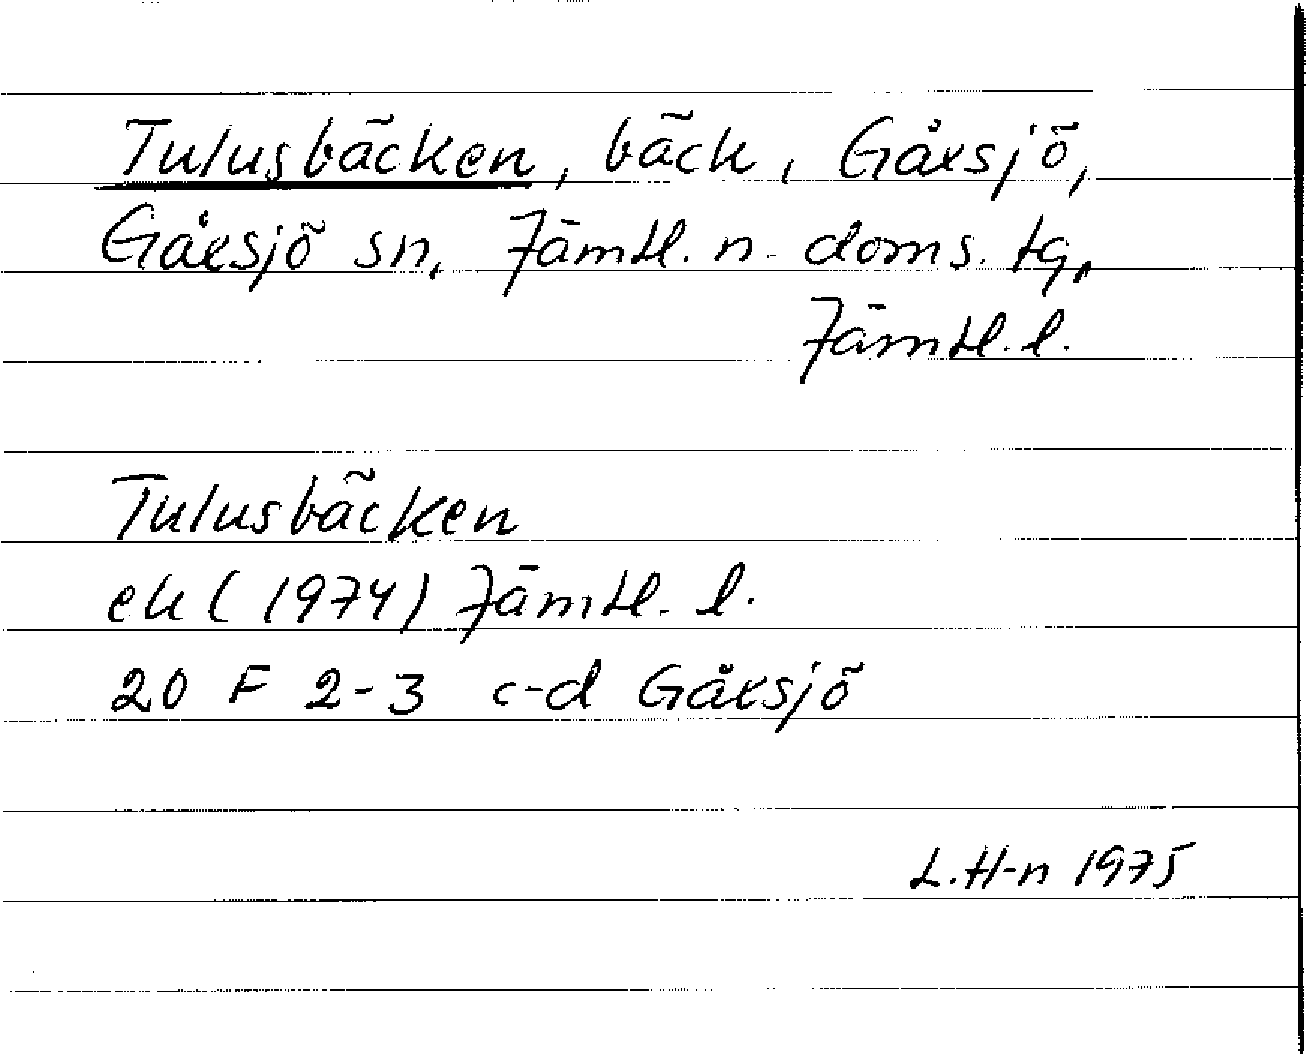 Tulusbäcken, bäck, Gåxsjö,
Gåxsjö sn, Jämtl. n. doms. tg,
Jämtl. l.
Tulusbäcken
ek (1974) Jämtl. l.
20 F 2-3 c-d Gåxsjö
L. H-n 1975